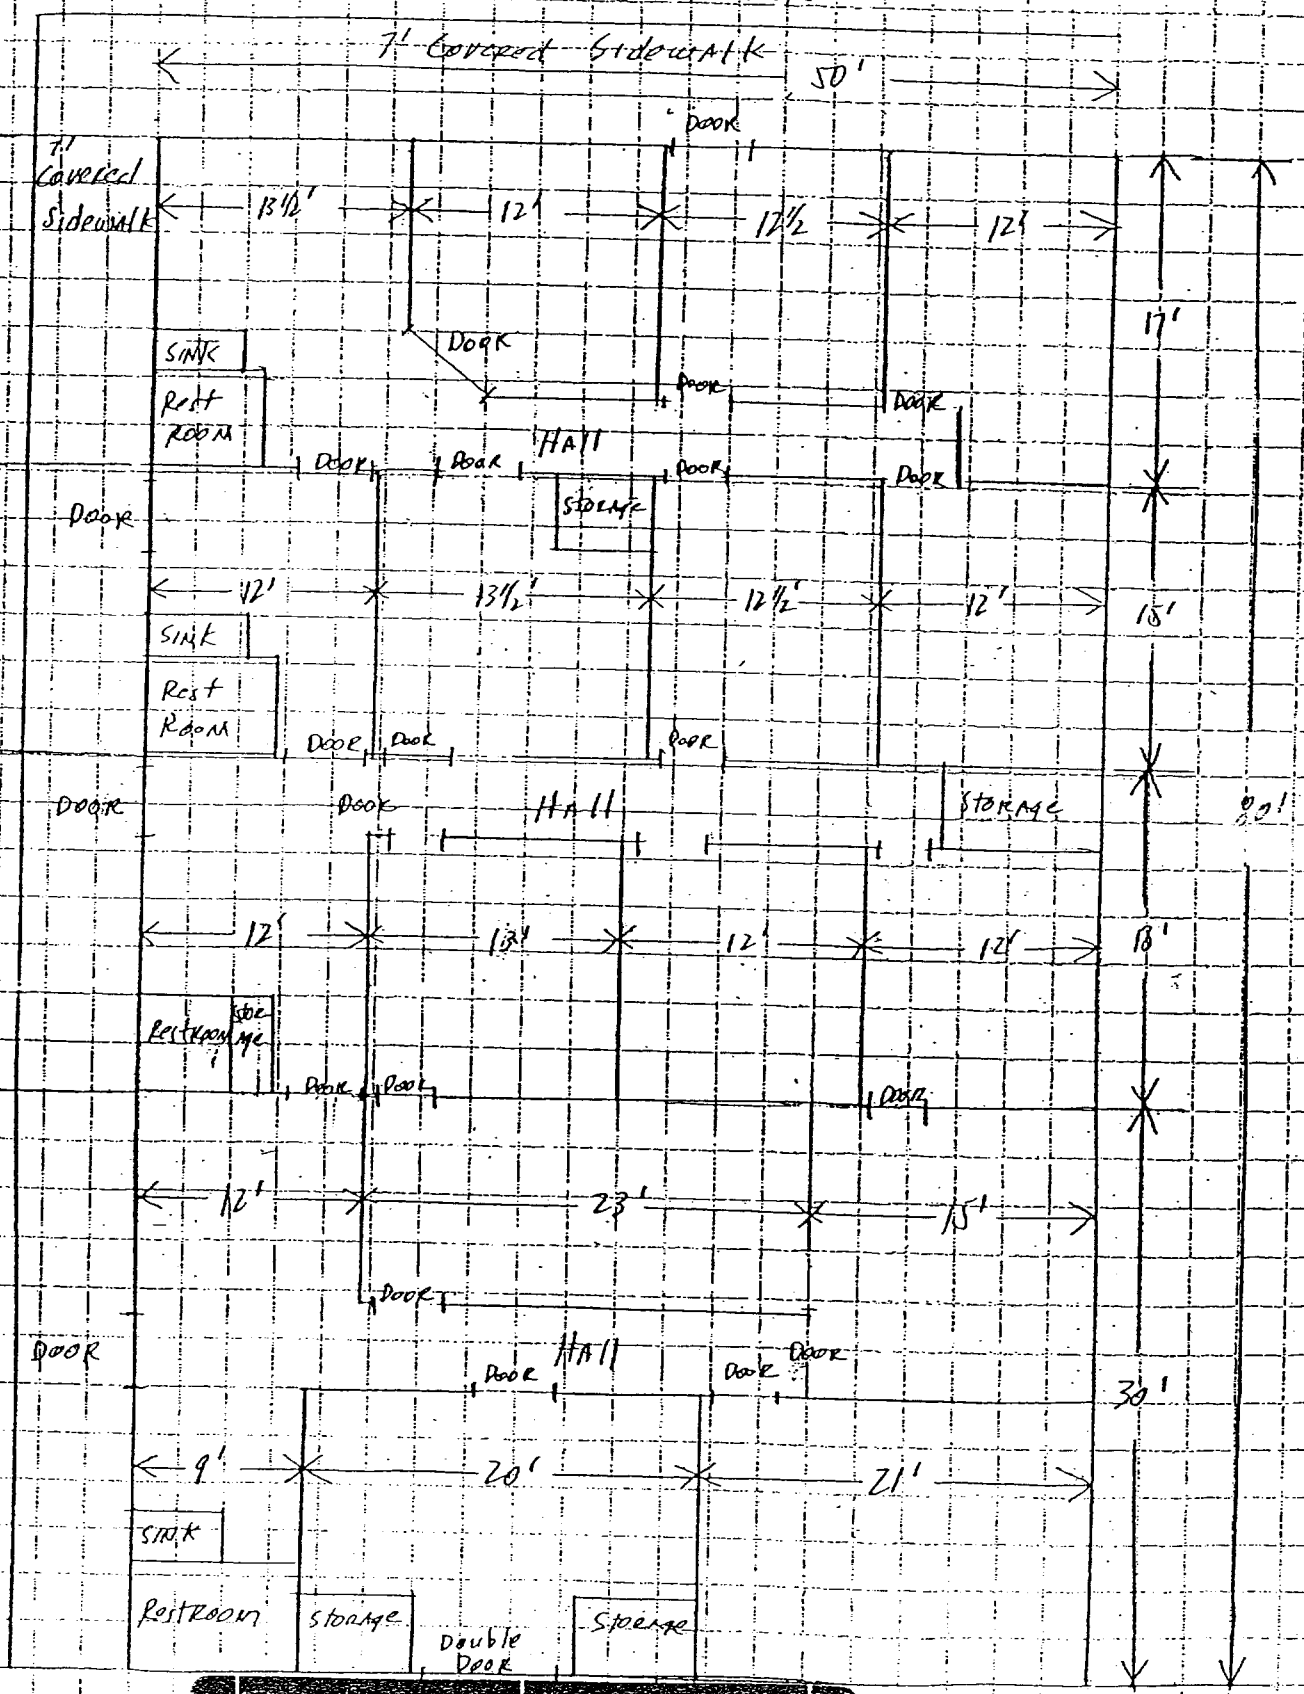 7' Covered Sidewalk
50'
Door
7'
Covered
Sidewalk
13 1/2'
12'
12 1/2
12'
17'
Sink
Door
Rest
Room
Door
Door
Hall
Door
Door
Door
Door
Storage
Door
12'
13 1/2'
12 1/2'
12'
15'
Sink
Rest
Room
Door
Door
Door
Door
Door
Hall
Storage
80'
12'
13'
12'
12'
18'
Restroom
Stor
age
Door
Door
Door
12'
23'
15'
Door
Door
Hall
Door
Door
Door
30'
9'
20'
21'
Sink
Restroom
Storage
Storage
Double
Door